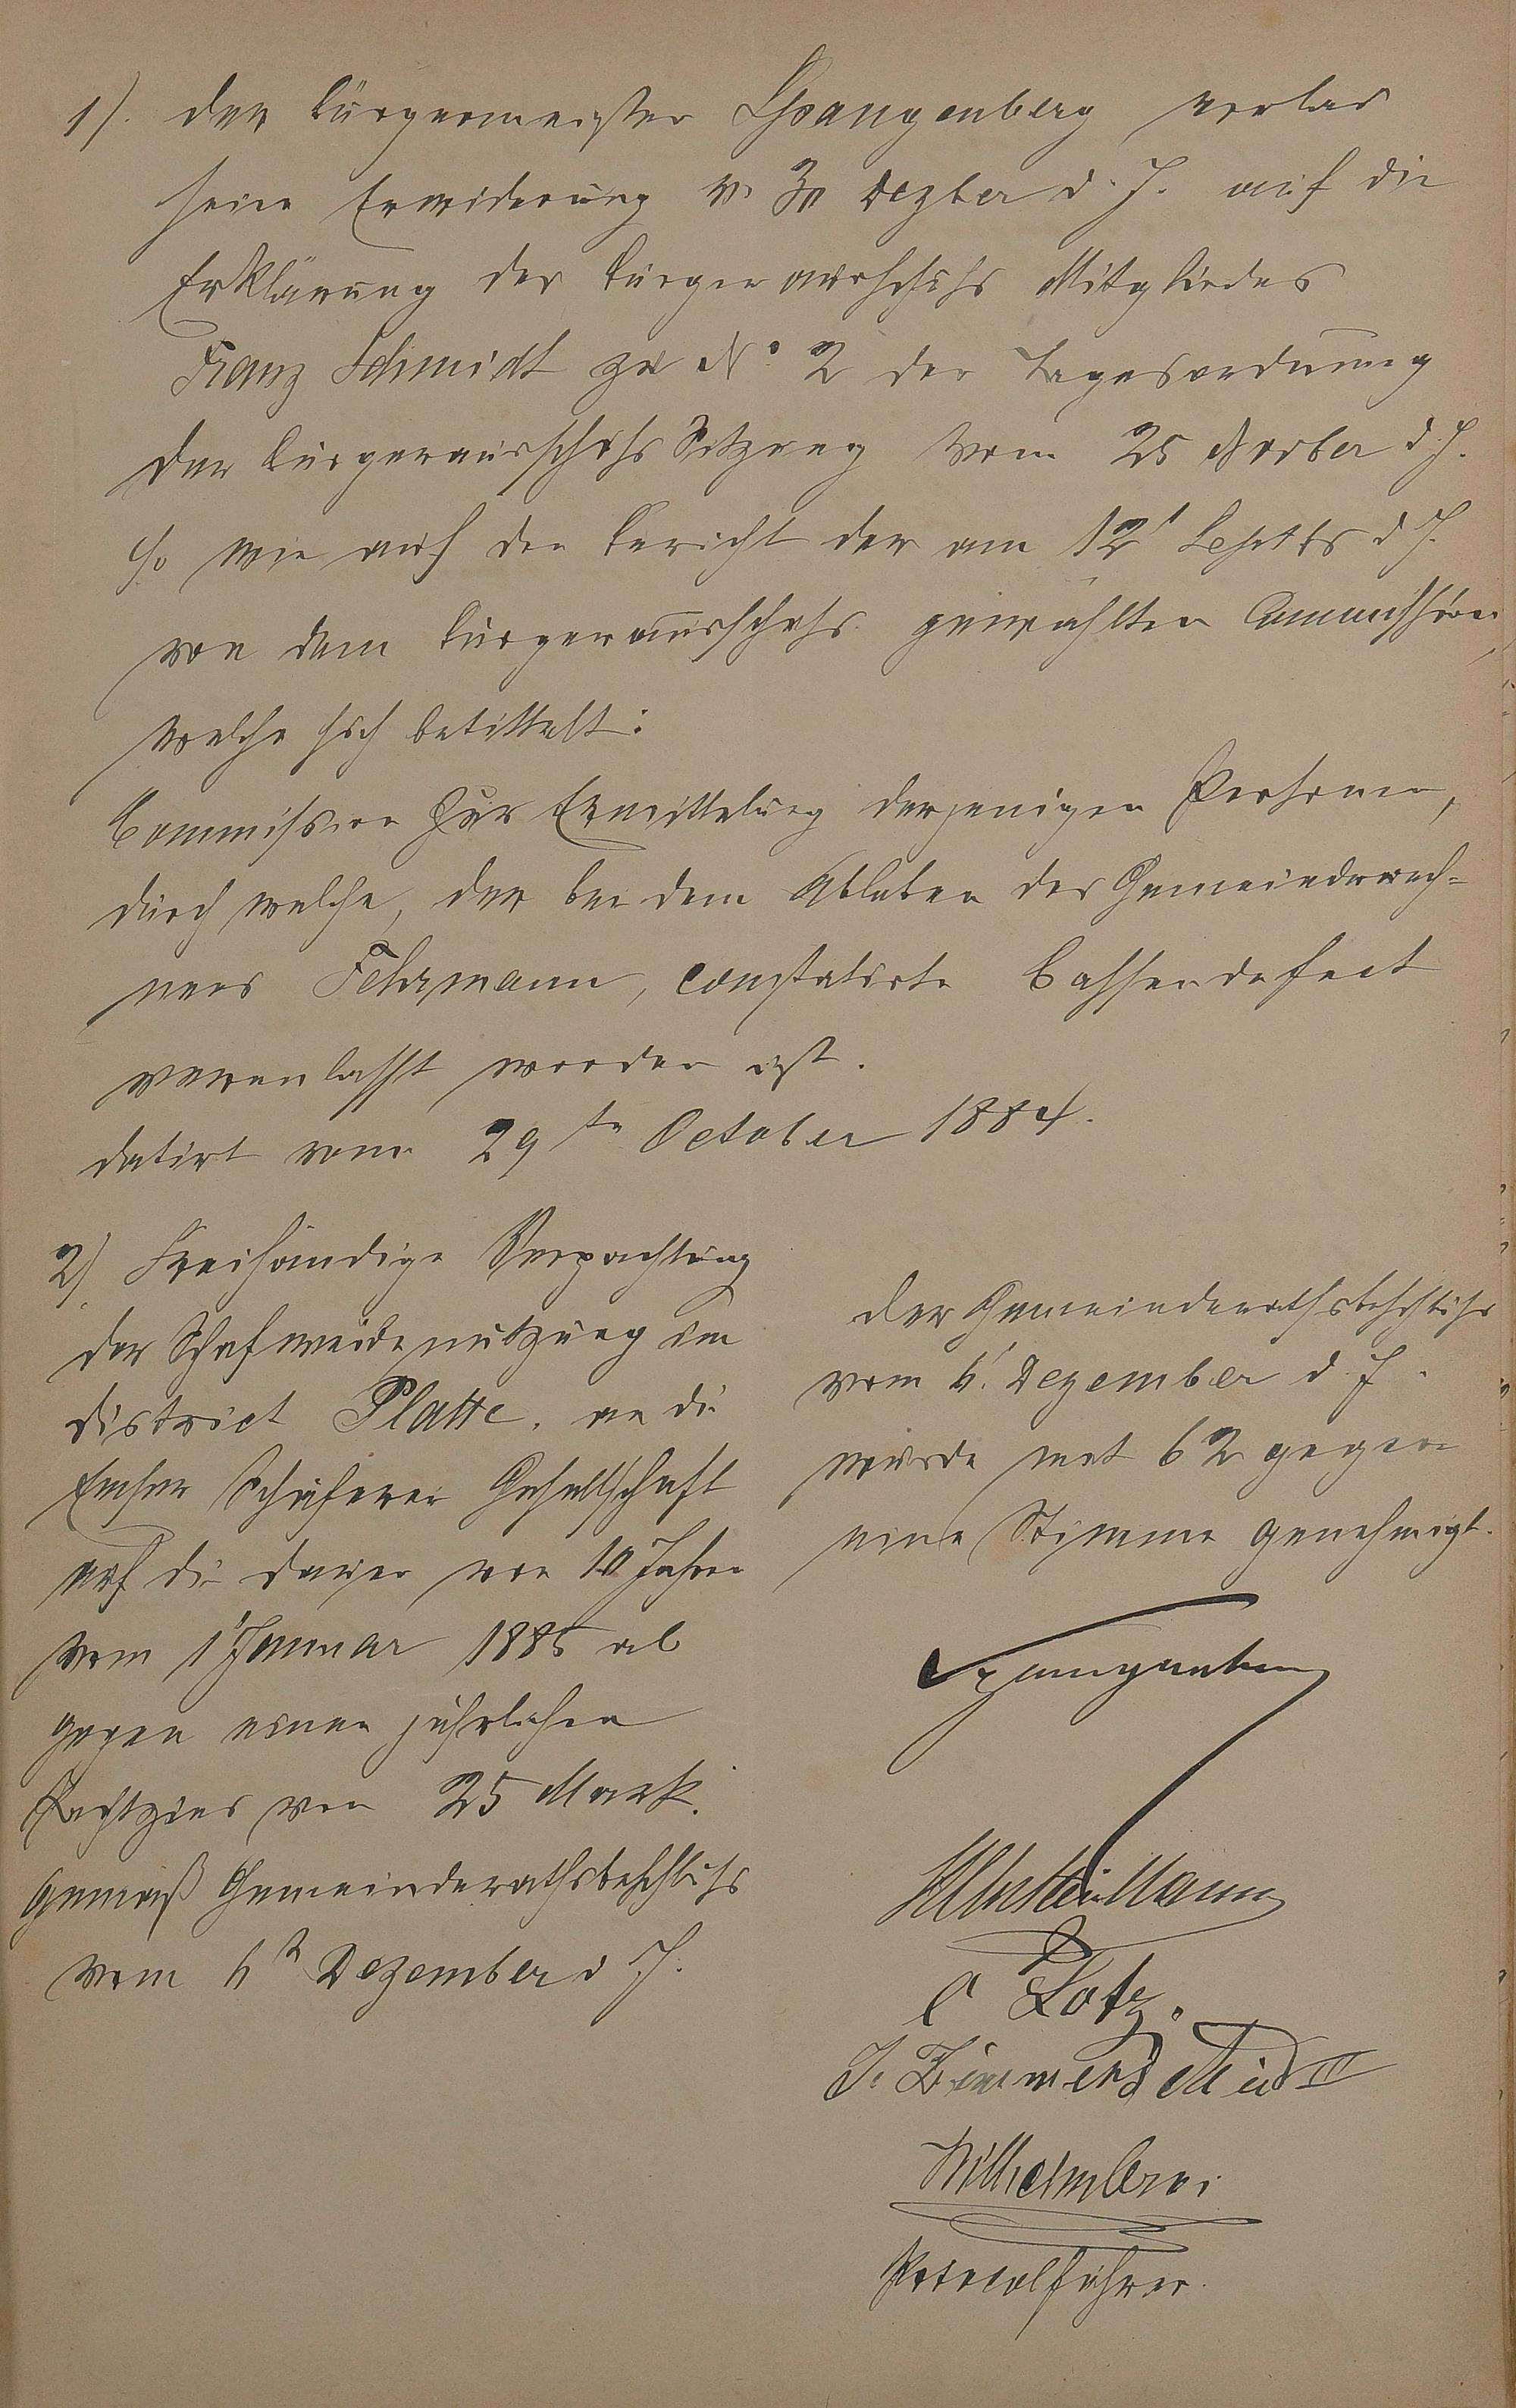 1). Der Bürgermeister Spangenberg verlas
seine Erwiderung v. 3n Dezber d. J. auf die
Erklärung des Bürgerausschuß Mitgliedes
Franz Schmidt zu No 2 der Tagesordnung
der Bürgerausschuß Sitzung vom 25 Novber d. J.
so wie auf den Bericht der am 12t Septbr d J.
von dem Bürgerausschuß gewählten Commission,
welche sich betittelt:
Commission zur Ermittelung derjenigen Personen,
durch welche, der bei dem Ableben des Gemeinderech-
ners Fehrmann, constatirte Cassendefect
veranlasst worden ist.
datirt vom 29ten October 1884.
2) Freihändige Verpachtung
der Schafweidenutzung im
District Platte, an die
Emser Schäferei Gesellschaft
auf die Dauer von 10 Jahren
vom 1t Januar 1885 ab
gegen einen jährlichen
Pachtzins von 25 Mark.
gemäß Gemeinderathsbeschluß
vom 6n Dezember d J.
Der Gemeinderathsbeschluß
vom 6t. Dezember d. J.
wurde mit 62 gegen
eine Stimme genehmigt.
Spangenberg
C Lotz.
Protocolführer.